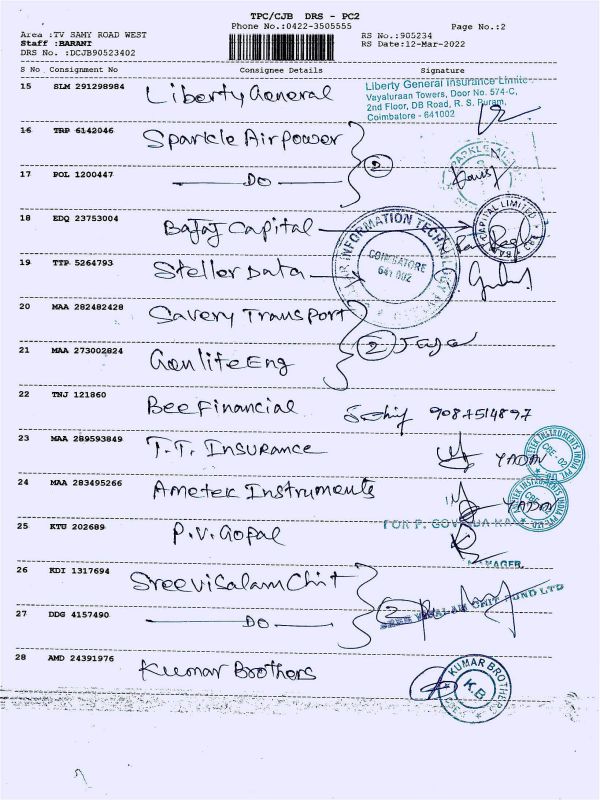 TPC/CJB DRS - PC2
Phone No.:0422-3505555 Page No.:2
Area :TV SAMY ROAD WEST RS No.:905234
Staff :BARANI RS Date:12-Mar-2022
DRS No. :DCJB90523402
S No Consignment No Consignee Details Signature
15 SLM 291298984 Liberty General
Liberty General Insurance Limite
Vayaluraan Towers, Door No. 574-C,
2nd Floor, DB Road, R. S. Puram,
Coimbatore - 641002
16 TRP 6142046 Sparkle Airpower
2
17 POL 1200447 DO
18 EDQ 23753004 Bajaj Capital
CAPITAL LIMITED
INFORMATION TECHN
COIMBATORE
641 002
19 TTP 5264793 Steller Data
20 MAA 282482428 Savery Transport
2
21 MAA 273002824 Ganlife Eng
22 TNJ 121860 Bee Financial 9087514897
23 MAA 289593849 T.T. Insurance YADAV
INSTRUMENTS INDIA PVT
CBE - 02
24 MAA 283495266 Ametek Instruments YADAV
INSTRUMENTS
CBE
25 KTU 202689 P.V. Gopal
FOR P.
MANAGER
26 KDI 1317694 Sreevisalam Chit
2
SREE VISALAM CHIT FUND LTD
27 DDG 4157490 DO
28 AMD 24391976 Kumar Brothers
KUMAR BROTHERS
K.B